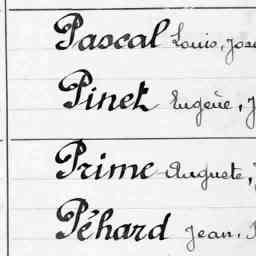 Pascal Louis, Jose
Pinet Eugène, J
Prime Auguste,
Péhard Jean,